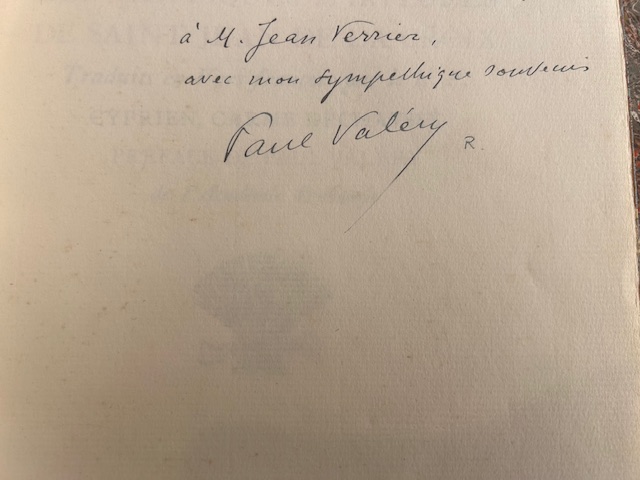 à M. Jean Verrier,
avec mon sympathique souvenir
Paul Valéry
R.
DE SAIN
Traduit
CYPRIEN, CARME DÉ
de l'Académie